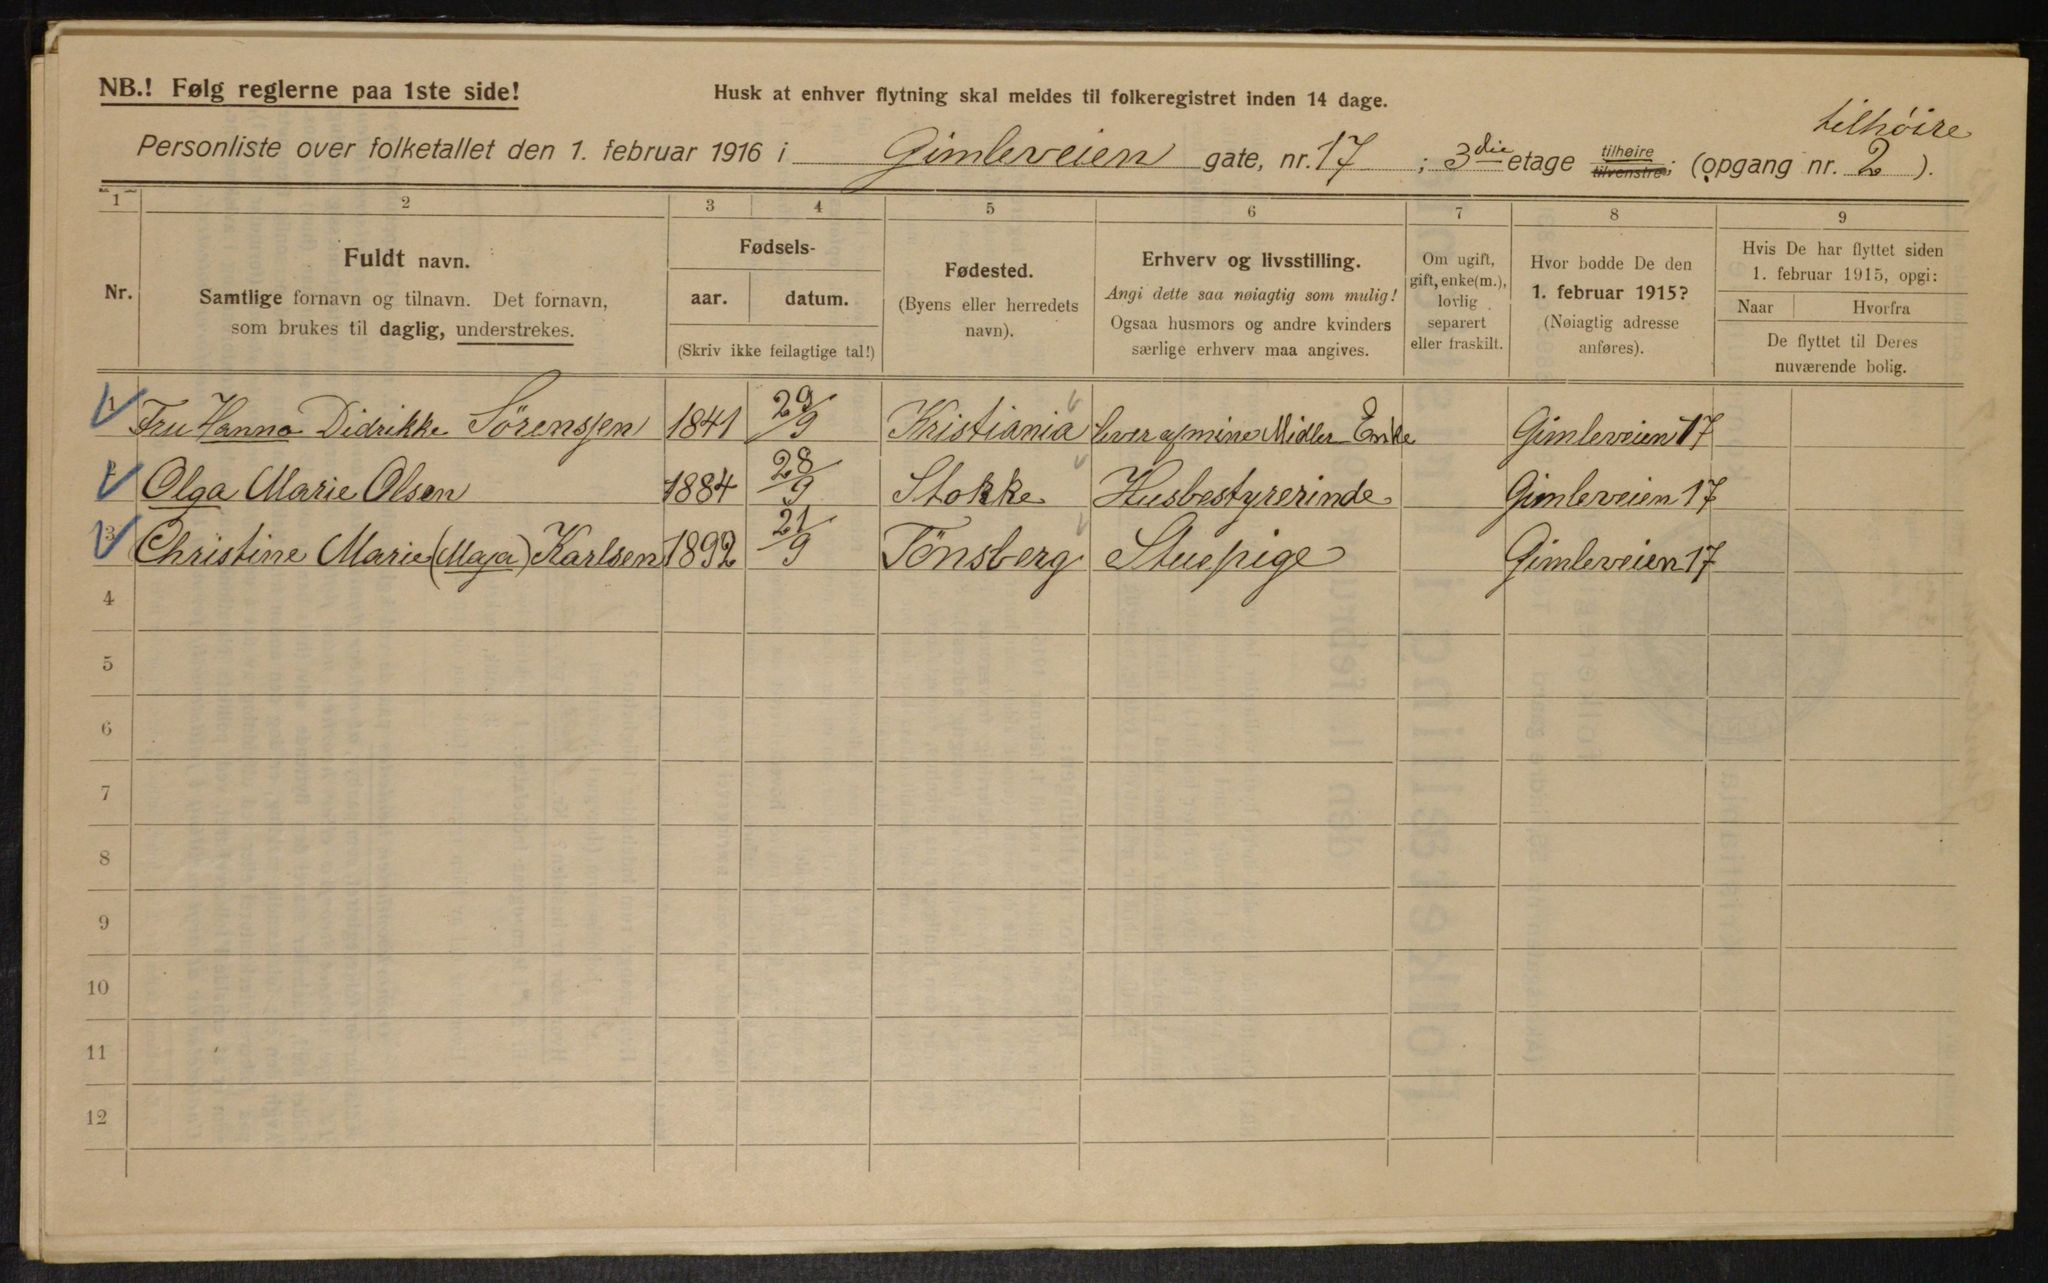 NB.! Følg reglerne paa 1ste side!
Husk at enhver flytning skal meldes til folkeregistret inden 14 dage.
tilhøire
Personliste over folketallet den 1. februar 1916 i Gimleveien gate, nr. 17 ; 3die etage tilhøire tilvenstre; (opgang nr. 2 ).
1 2 3 4 5 6 7 8 9
Nr.
Fuldt navn.
Samtlige fornavn og tilnavn. Det fornavn,
som brukes til daglig, understrekes.
Fødsels-
aar. datum.
(Skriv ikke feilagtige tal!)
Fødested.
(Byens eller herredets
navn).
Erhverv og livsstilling.
Angi dette saa nøiagtig som mulig!
Ogsaa husmors og andre kvinders
særlige erhverv maa angives.
Om ugift,
gift, enke(m.),
lovlig
separert
eller fraskilt.
Hvor bodde De den
1. februar 1915?
(Nøiagtig adresse
anføres).
Hvis De har flyttet siden
1. februar 1915, opgi:
Naar Hvorfra
De flyttet til Deres
nuværende bolig.
1 Fru Hanna Didrikke Sörenssen 1841 29/9 Kristiania lever af mine Midler Enke Gimleveien 17
2 Olga Marie Olsen 1884 28/9 Stokke Husbestyrerinde Gimleveien 17
3 Christine Marie (Maja) Karlsen 1892 21/9 Tönsberg Stuepige Gimleveien 17
4
5
6
7
8
9
10
11
12